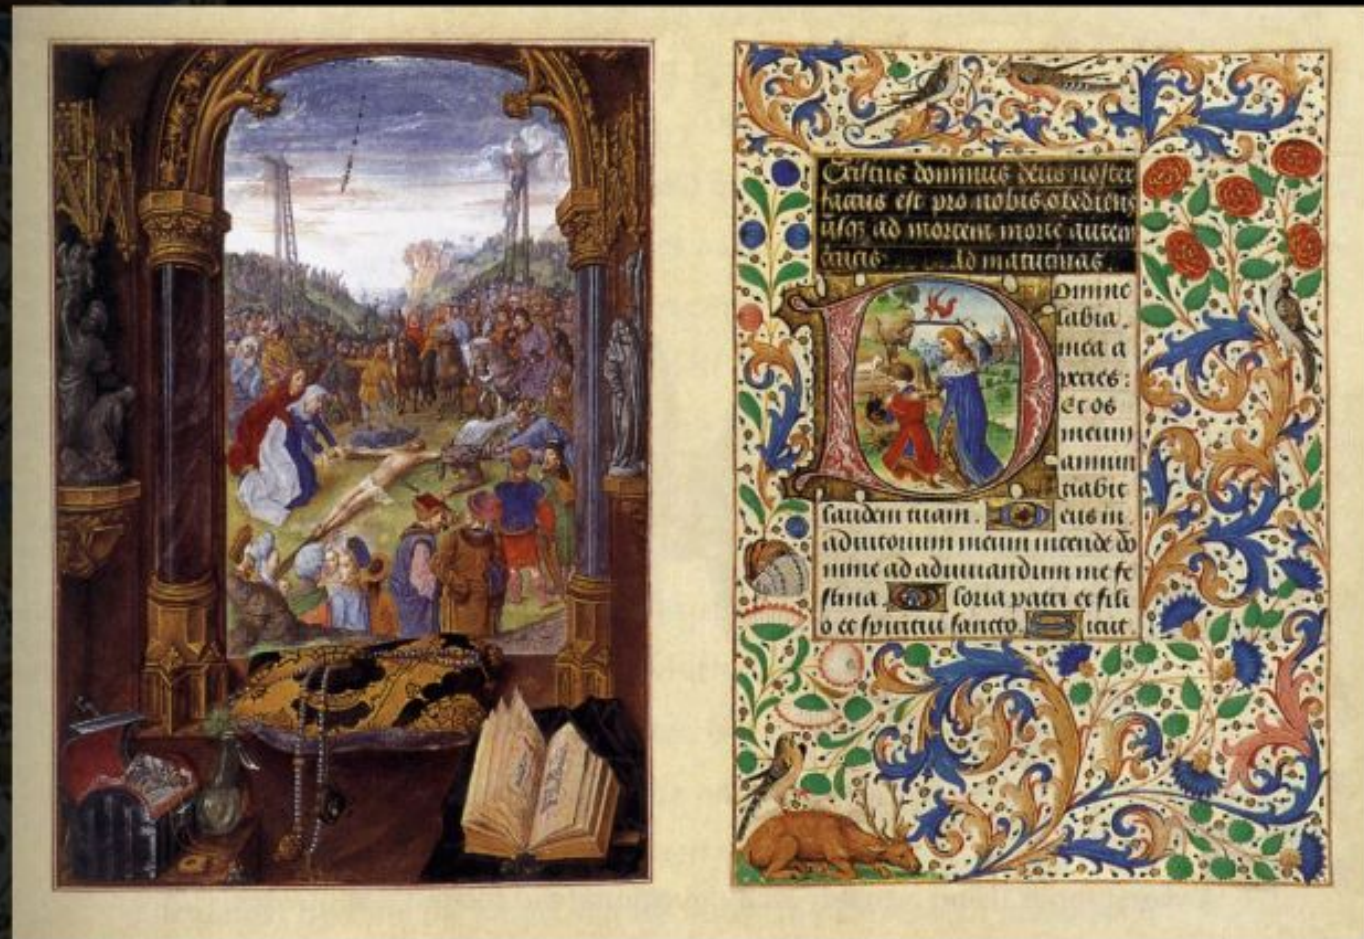 Cristus dominus deus noster
factus est pro nobis obediens
usq; ad mortem morte autem
crucis. Ad matutinas.
Domine
labia.
mea a
peries:
Et os
meum
annun
tiabit
laudem tuam. eus in.
adiutorium meum intende do
mine ad adiuuandum me fe
stina. loria patri et fili
o et spiritui sancto. icut.